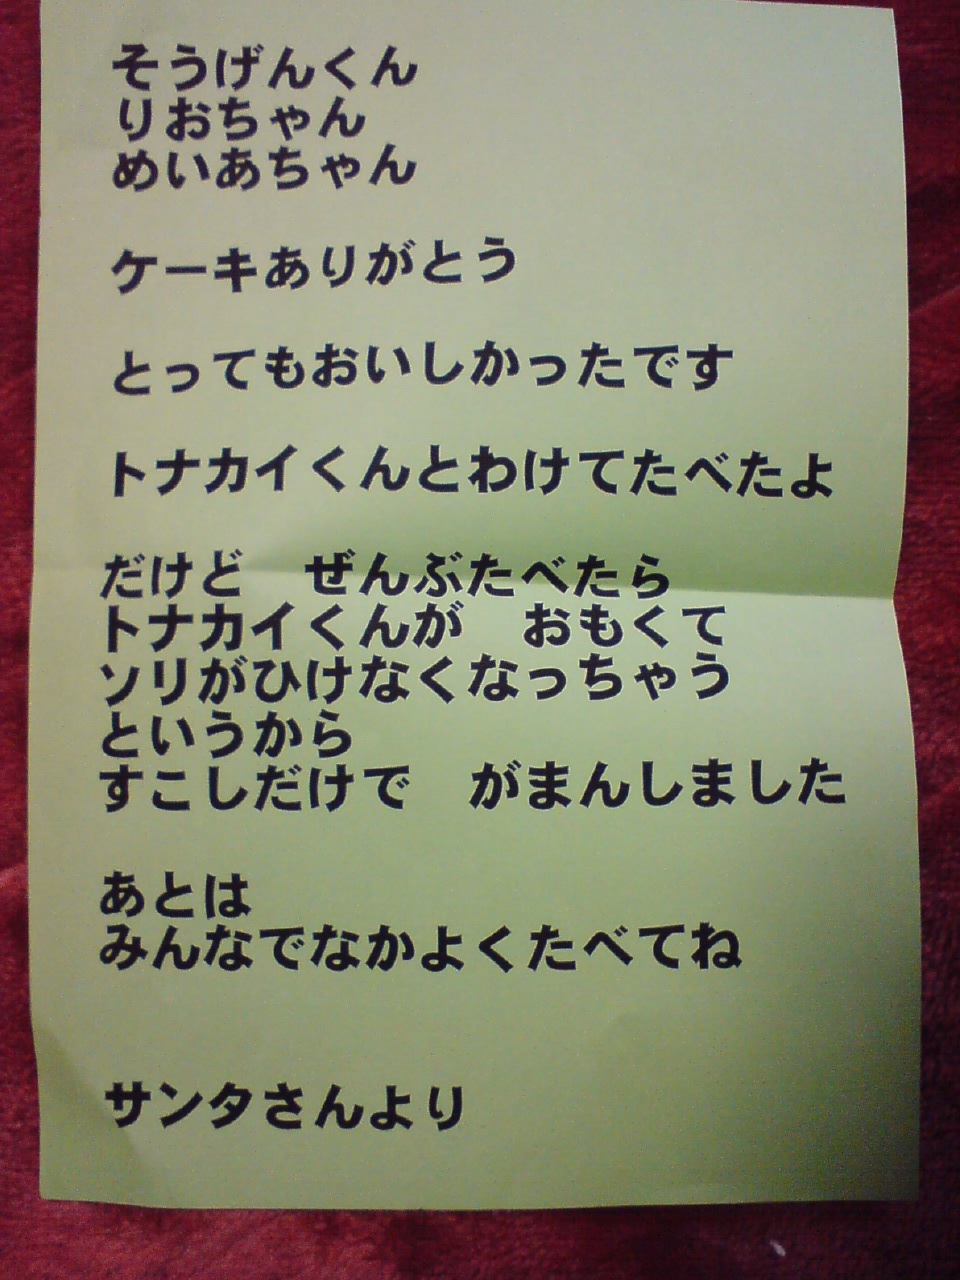 そうげんくん
りおちゃん
めいあちゃん
ケーキありがとう
とってもおいしかったです
トナカイくんとわけてたべたよ
だけど　ぜんぶたべたら
トナカイくんが　おもくて
ソリがひけなくなっちゃう
というから
すこしだけで　がまんしました
あとは
みんなでなかよくたべてね
サンタさんより